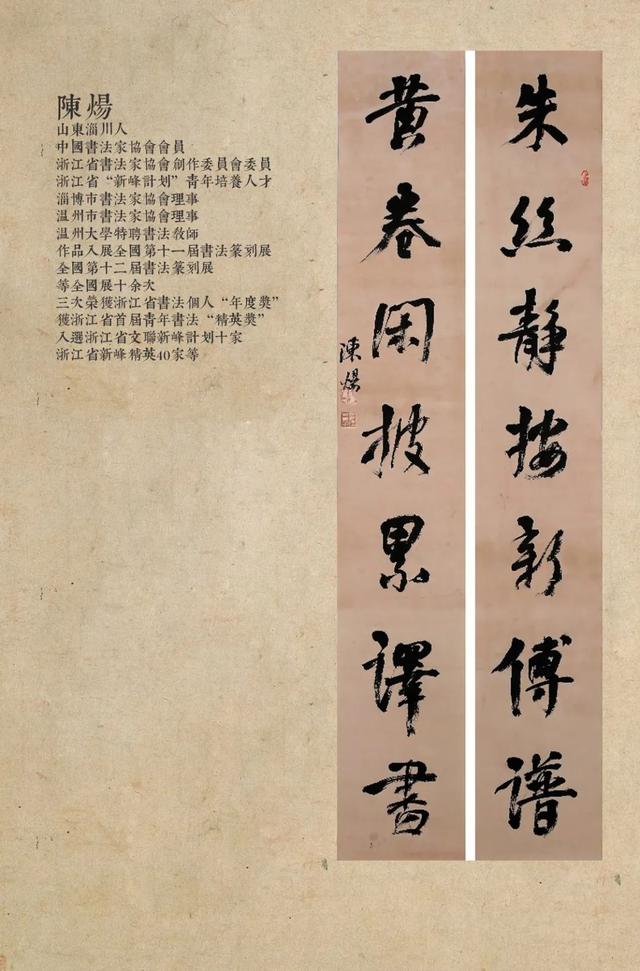 陳煬
山東淄川人
中國書法家協會會員
浙江省書法家協會創作委員會委員
浙江省“新峰計划”青年培養人才
淄博市書法家協會理事
温州市書法家協會理事
温州大學特聘書法教師
作品入展全國第十一届書法篆刻展
全國第十二届書法篆刻展
等全國展十余次
三次榮獲浙江省書法個人“年度獎”
獲浙江省首届青年書法“精英獎”
入選浙江省文聯新峰計划十家
浙江省新峰精英40家等
朱絲静按新傅譜
黄卷閑披累譯書
陳煬